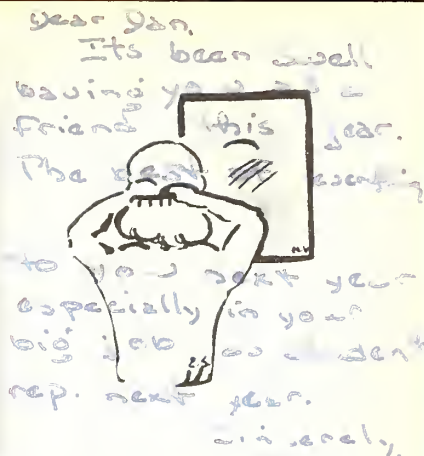 Dear Jan,
Its been swell
having you as a
friend this year.
The best
to you next year
especially in your
big job as
rep. next year.
Sincerely,